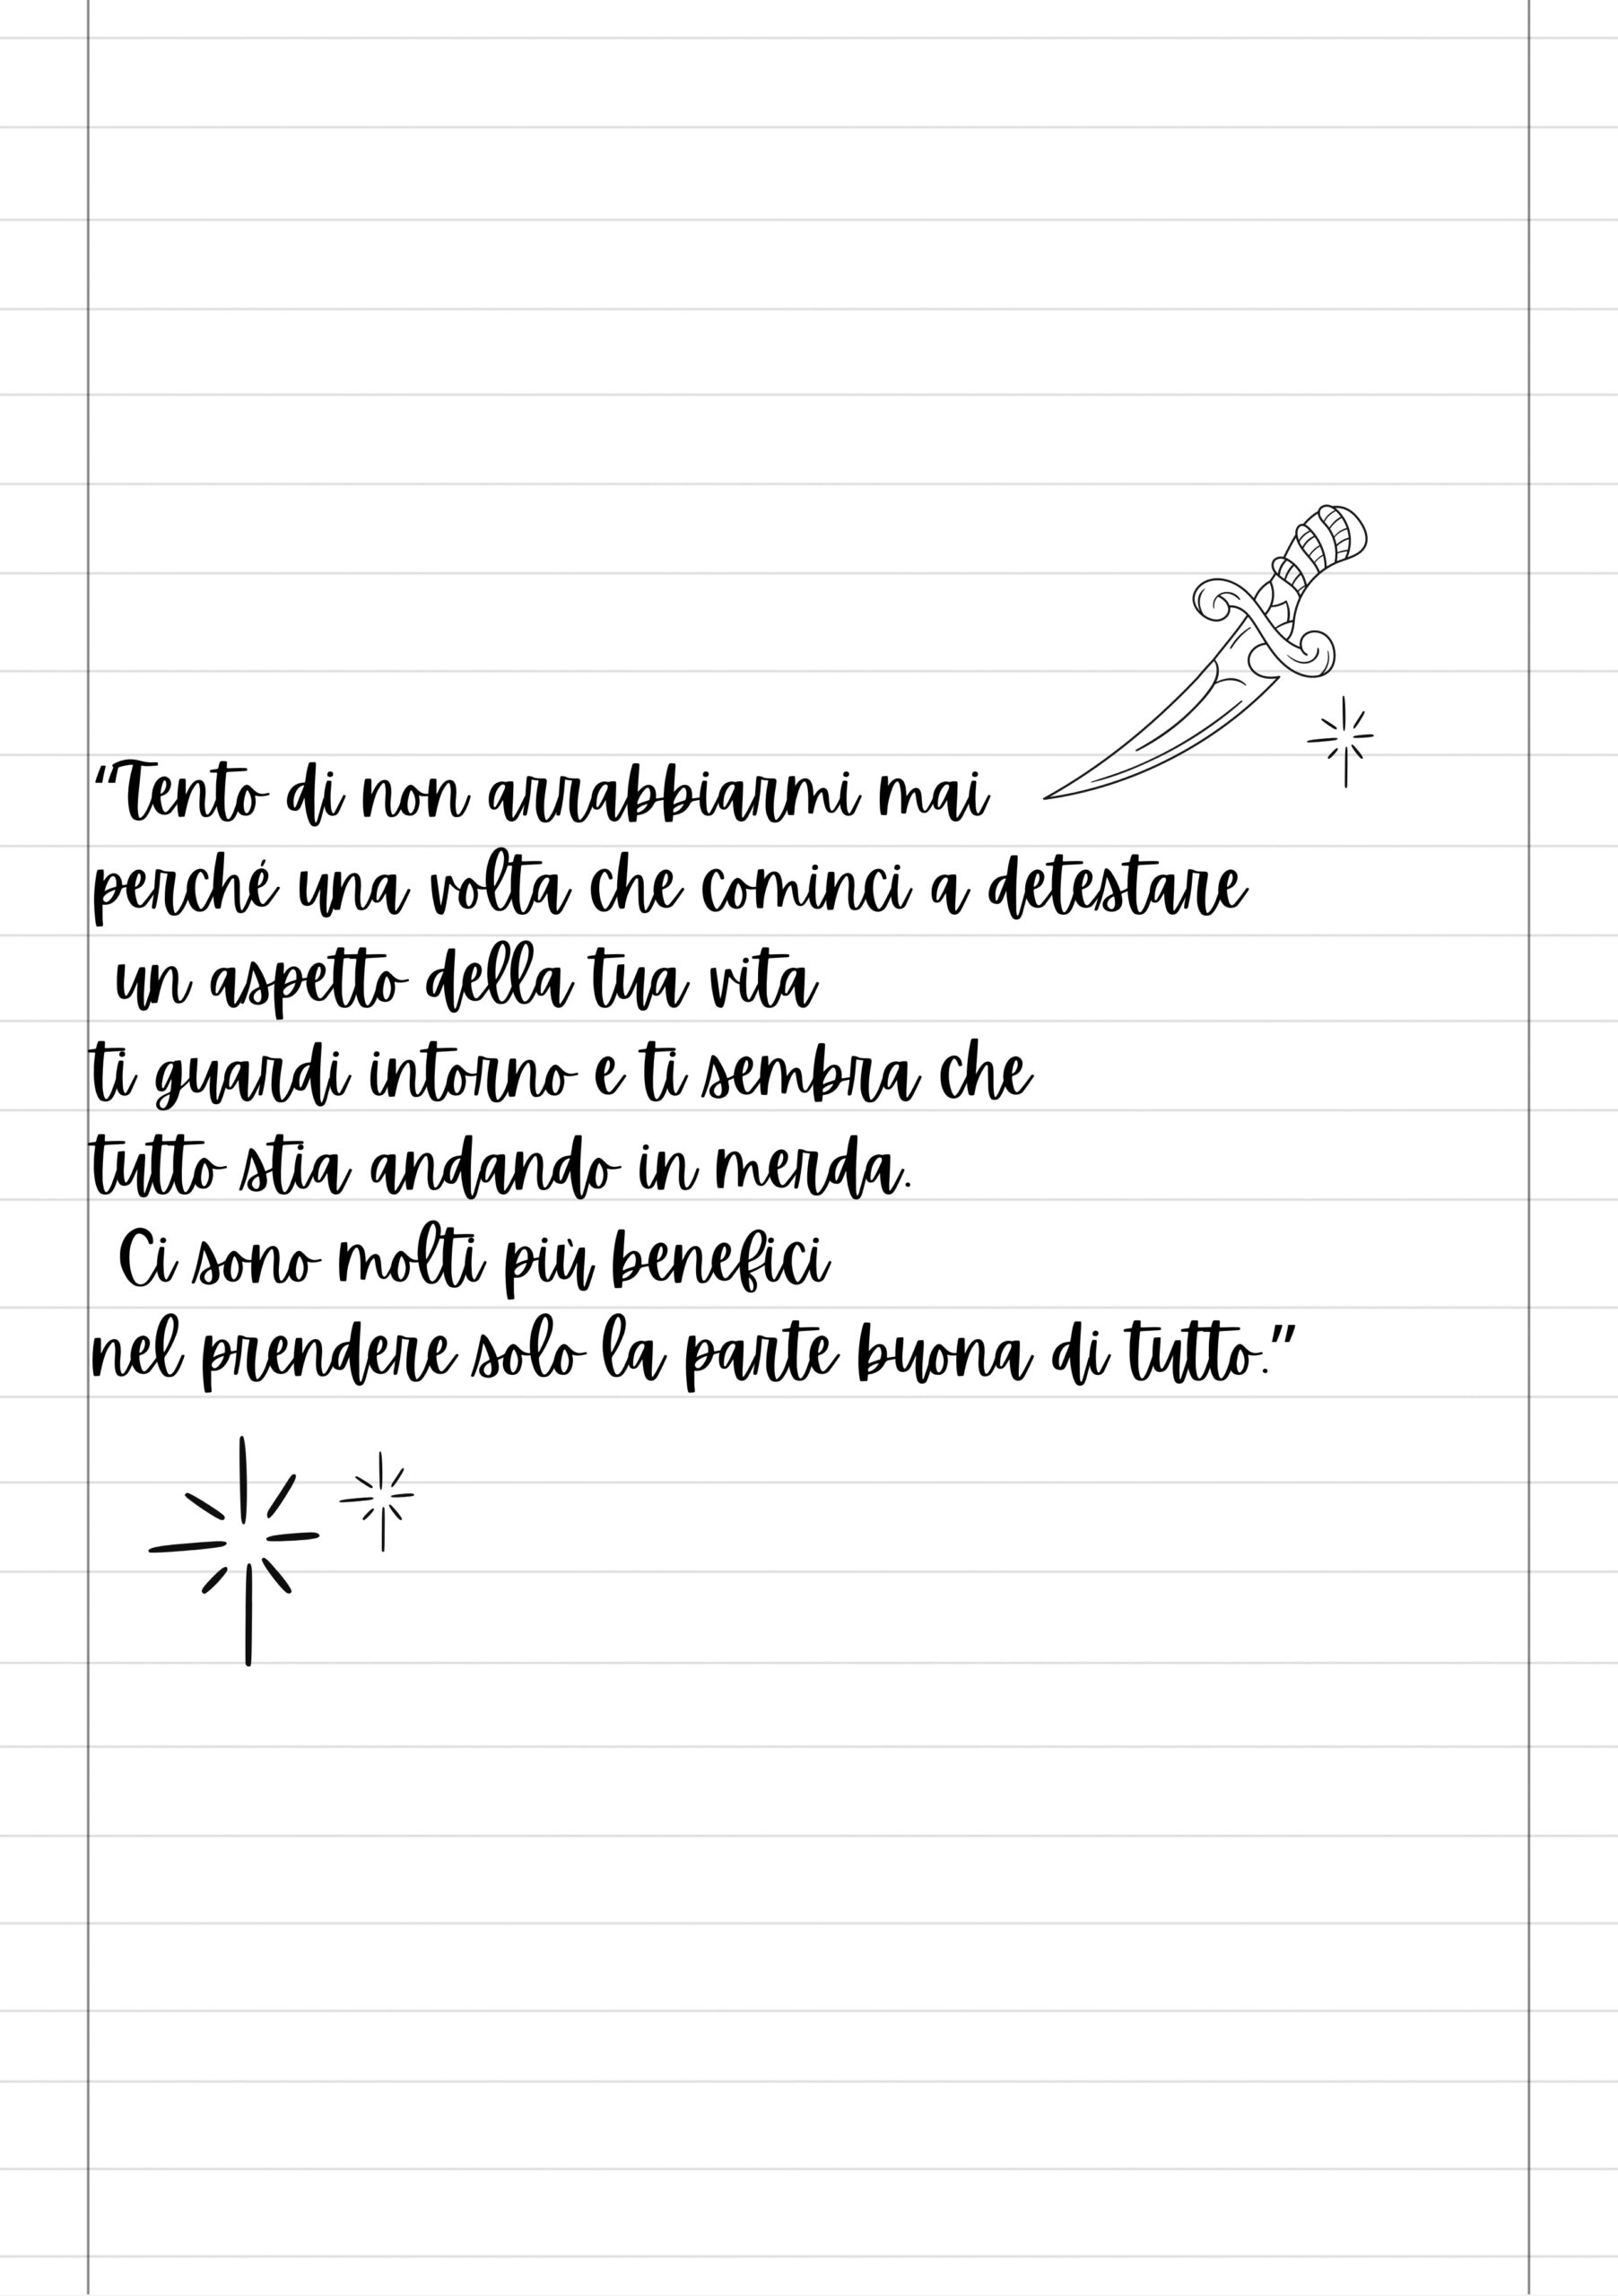 “Tento di non arrabbiarmi mai
perché una volta che cominci a detestare
un aspetto della tua vita
ti guardi intorno e ti sembra che
tutto stia andando in merda.
Ci sono molti più benefici
nel prendere solo la parte buona di tutto.”